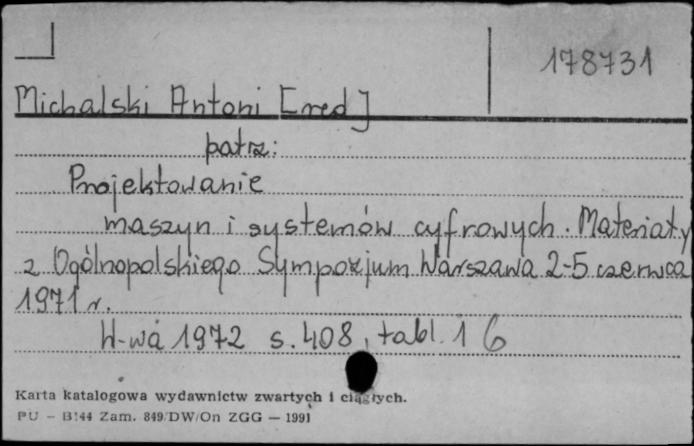 178731
Michalski Antoni [red]
patrz:
Projektowanie
maszyn i systemów cyfrowych. Materiały
z Ogólnopolskiego Sympozjum Warszawa 2-5 czerwca
1971 r.
W-wa 1972 s. 408, tabl. 1 6
Karta katalogowa wydawnictw zwartych i ciągłych.
PU - B144 Zam. 849/DW/On ZGG — 1991